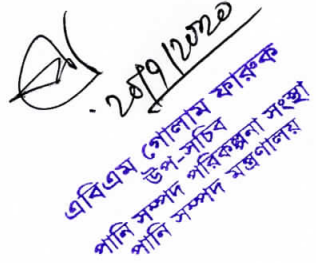 ২০/৭/২০২০
এবিএম গোলাম ফারুক
উপ-সচিব
পানি সম্পদ পরিকল্পনা সংস্থা
পানি সম্পদ মন্ত্রণালয়